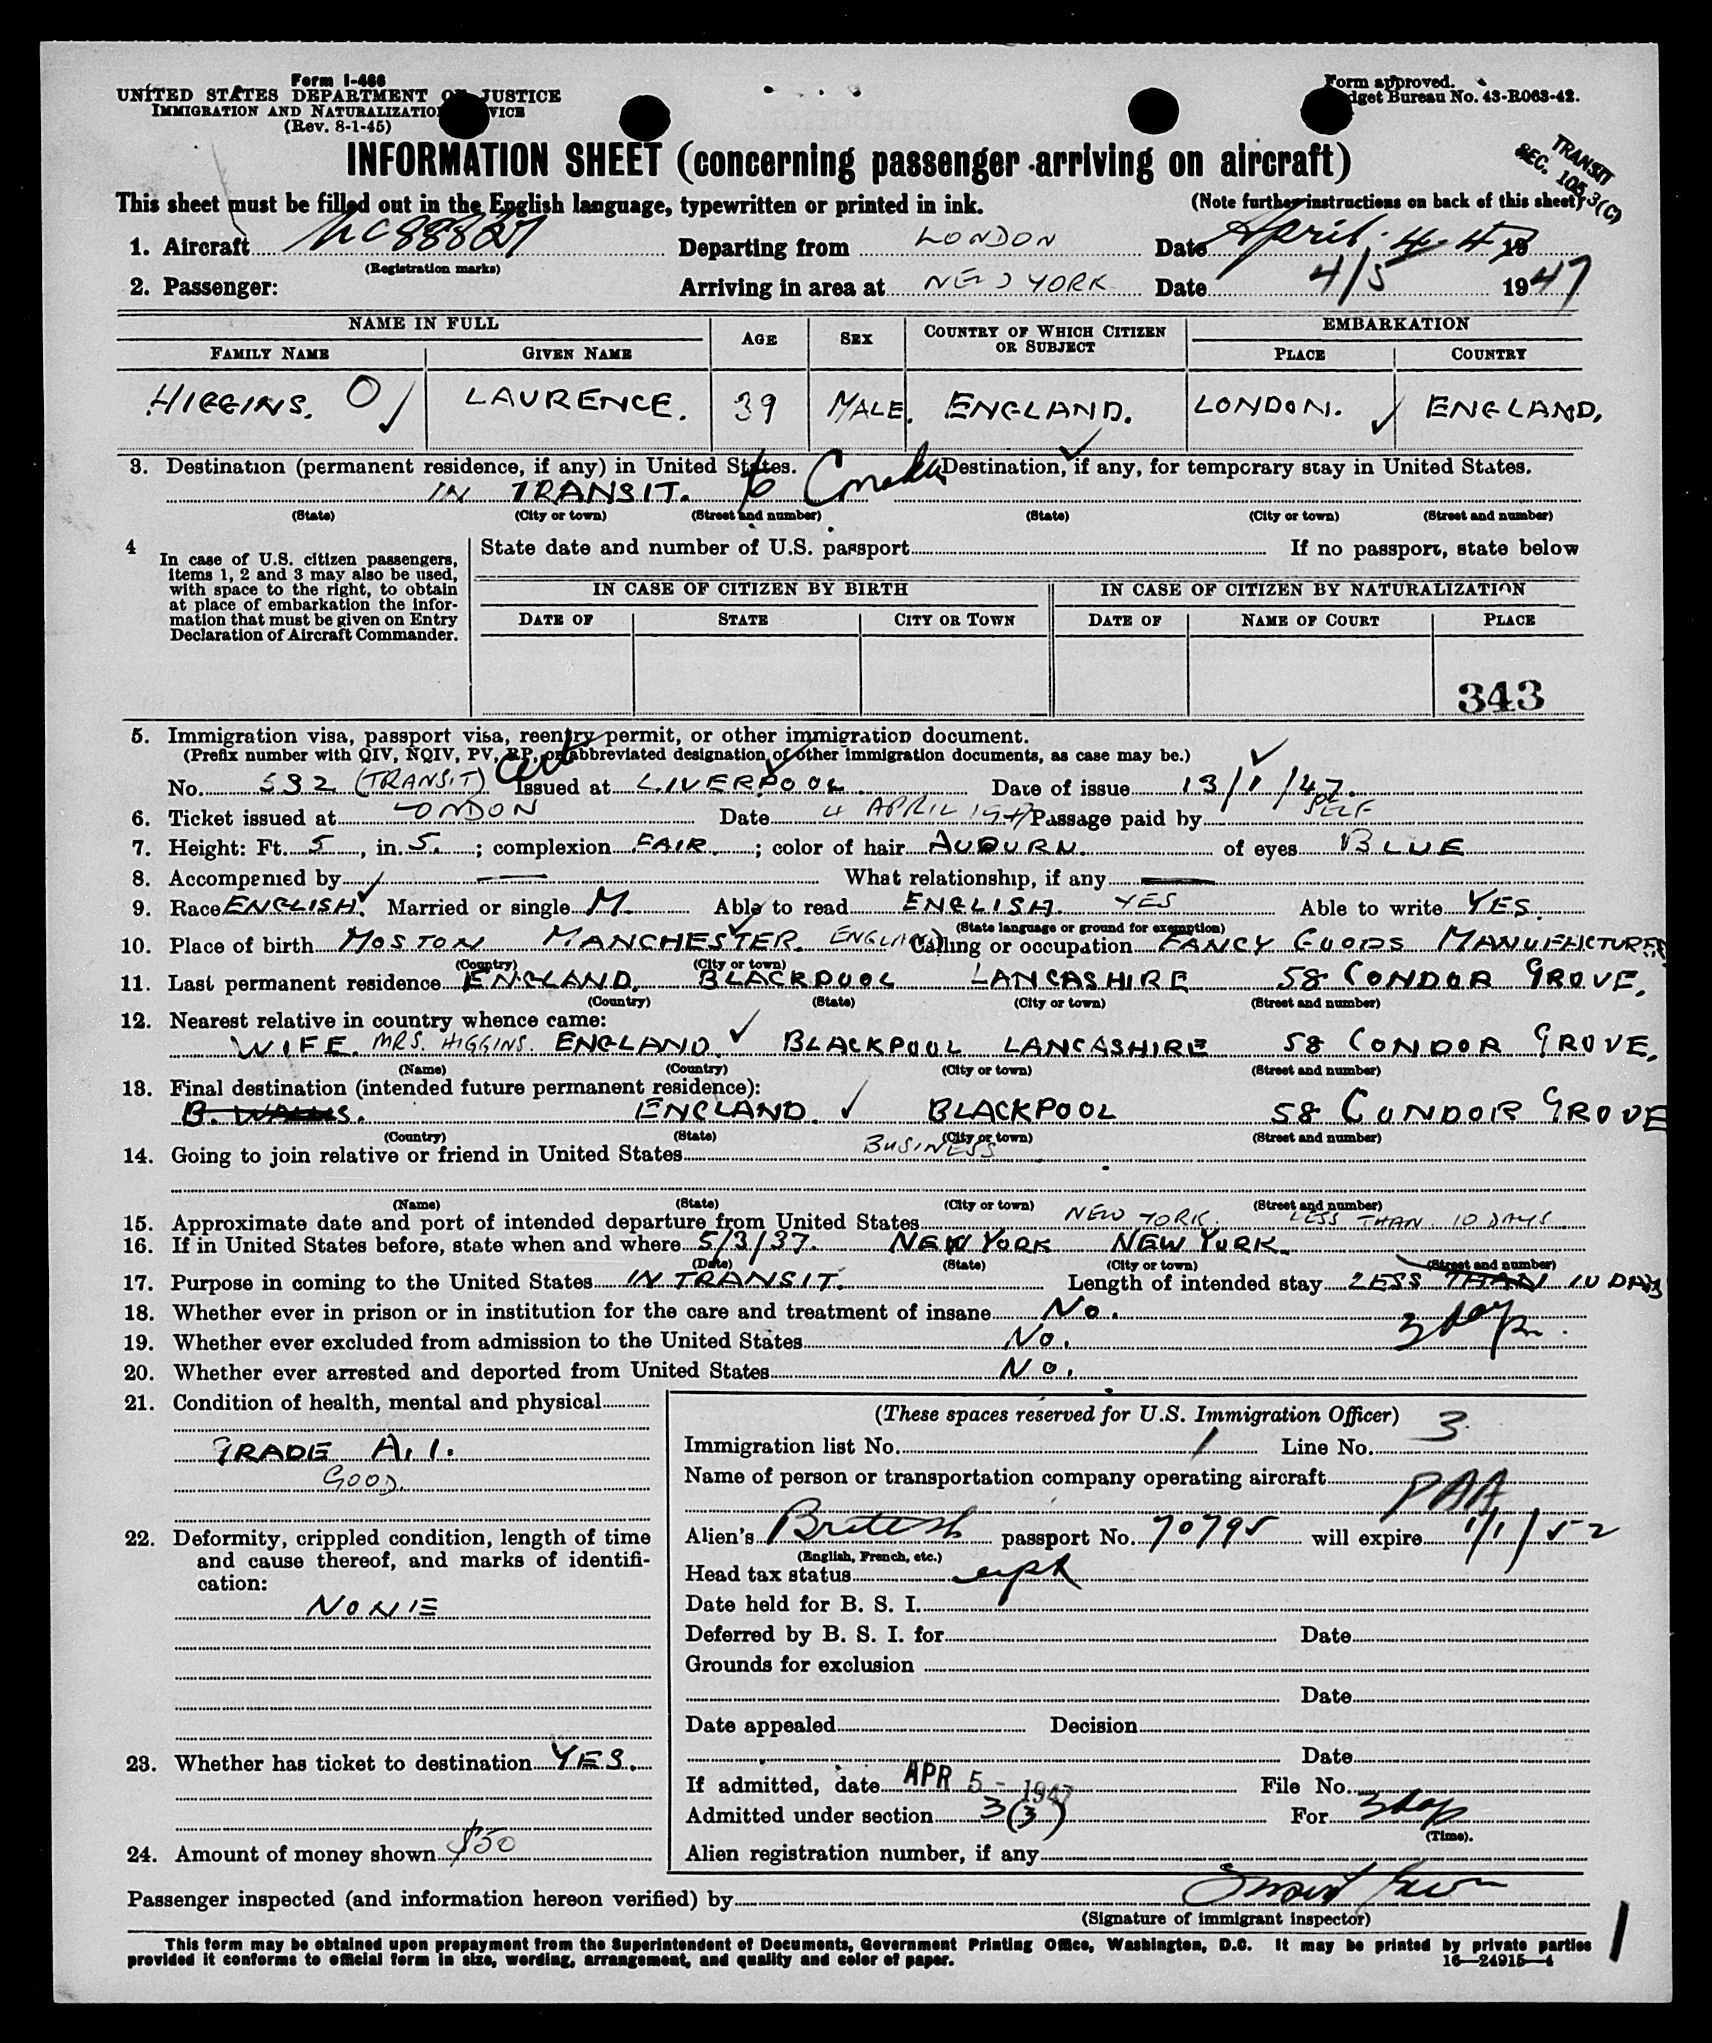 Form I-466
UNITED STATES DEPARTMENT OF JUSTICE
IMMIGRATION AND NATURALIZATION SERVICE
(Rev. 8-1-45)
Form approved.
Budget Bureau No. 43-R063-42.
INFORMATION SHEET (concerning passenger arriving on aircraft)
TRANSIT
SEC. 105.3(C)
This sheet must be filled out in the English language, typewritten or printed in ink. (Note further instructions on back of this sheet)
1. Aircraft NC88827 Departing from LONDON Date April 4 1947
(Registration marks)
2. Passenger: Arriving in area at NEW YORK Date 4/5 1947
NAME IN FULL AGE SEX COUNTRY OF WHICH CITIZEN OR SUBJECT EMBARKATION
FAMILY NAME GIVEN NAME PLACE COUNTRY
HIGGINS. LAURENCE. 39 MALE. ENGLAND. LONDON. ENGLAND.
3. Destination (permanent residence, if any) in United States. Destination, if any, for temporary stay in United States.
IN TRANSIT. to
(State) (City or town) (Street and number) (State) (City or town) (Street and number)
4 In case of U.S. citizen passengers, items 1, 2 and 3 may also be used, with space to the right, to obtain at place of embarkation the information that must be given on Entry Declaration of Aircraft Commander.
State date and number of U.S. passport If no passport, state below
IN CASE OF CITIZEN BY BIRTH IN CASE OF CITIZEN BY NATURALIZATION
DATE OF STATE CITY OR TOWN DATE OF NAME OF COURT PLACE
343
5. Immigration visa, passport visa, reentry permit, or other immigration document.
(Prefix number with QIV, NQIV, PV, RP, or abbreviated designation of other immigration documents, as case may be.)
No. 592 (TRANSIT) Cert Issued at LIVERPOOL Date of issue 13/1/47.
6. Ticket issued at LONDON Date 4 APRIL 1947 Passage paid by SELF
7. Height: Ft. 5, in. 5.; complexion FAIR.; color of hair AUBURN. of eyes BLUE
8. Accompanied by — What relationship, if any —
9. Race ENGLISH. Married or single M. Able to read ENGLISH. YES Able to write YES.
(State language or ground for exemption)
10. Place of birth MOSTON MANCHESTER. ENGLAND Calling or occupation FANCY GOODS MANUFACTURER
(Country) (City or town)
11. Last permanent residence ENGLAND. BLACKPOOL LANCASHIRE 58 CONDOR GROVE.
(Country) (State) (City or town) (Street and number)
12. Nearest relative in country whence came:
WIFE. MRS. HIGGINS. ENGLAND. BLACKPOOL LANCASHIRE 58 CONDOR GROVE.
(Name) (Country) (City or town) (Street and number)
13. Final destination (intended future permanent residence):
ENGLAND. BLACKPOOL 58 CONDOR GROVE
(Country) (State) (City or town) (Street and number)
14. Going to join relative or friend in United States BUSINESS
(Name) (State) (City or town) (Street and number)
15. Approximate date and port of intended departure from United States NEW YORK. LESS THAN 10 DAYS
16. If in United States before, state when and where 5/3/37. NEW YORK NEW YORK.
(Date) (State) (City or town) (Street and number)
17. Purpose in coming to the United States IN TRANSIT. Length of intended stay LESS THAN 10 DAYS
3 days
18. Whether ever in prison or in institution for the care and treatment of insane No.
19. Whether ever excluded from admission to the United States No.
20. Whether ever arrested and deported from United States No.
21. Condition of health, mental and physical
GRADE A.1.
GOOD.
22. Deformity, crippled condition, length of time and cause thereof, and marks of identification:
NONE
23. Whether has ticket to destination YES.
24. Amount of money shown $50
(These spaces reserved for U.S. Immigration Officer)
Immigration list No. 1 Line No. 3
Name of person or transportation company operating aircraft
PAA
Alien's British passport No. 70795 will expire 1/1/52
(English, French, etc.)
Head tax status
Date held for B. S. I.
Deferred by B. S. I. for Date
Grounds for exclusion
Date
Date appealed Decision
Date
If admitted, date APR 5 - 1947 File No.
Admitted under section 3(3) For 3 days
(Time).
Alien registration number, if any
Passenger inspected (and information hereon verified) by
(Signature of immigrant inspector)
This form may be obtained upon prepayment from the Superintendent of Documents, Government Printing Office, Washington, D.C. It may be printed by private parties
provided it conforms to official form in size, wording, arrangement, and quality and color of paper. 16—24915-4